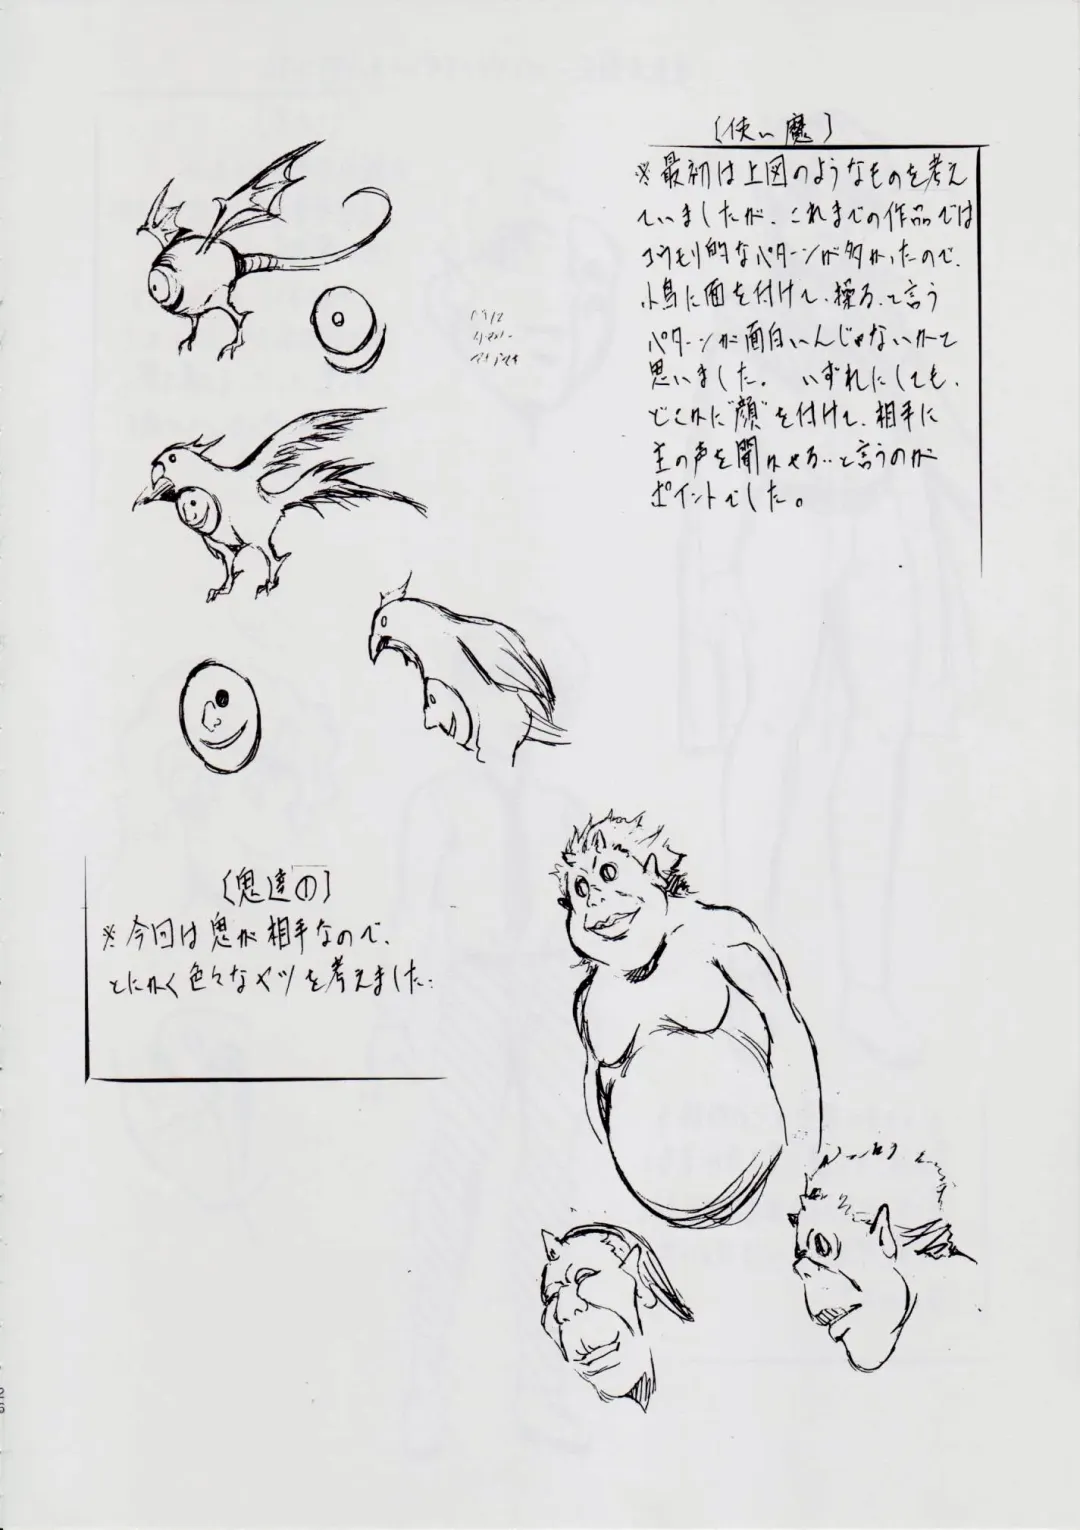 〔使い魔〕
※最初は上図のようなものを考え
ていましたが、これまでの作品では
コウモリ的なパターンが多かったので、
小鳥に面を付けて、操る、と言う
パターンが面白いんじゃないかと
思いました。 いずれにしても、
どこかに"顔"を付けて、相手に
主の声を聞かせる‥と言うのが
ポイントでした。
〔鬼達①〕
※今回は鬼が相手なので、
とにかく色々なヤツを考えました:
26